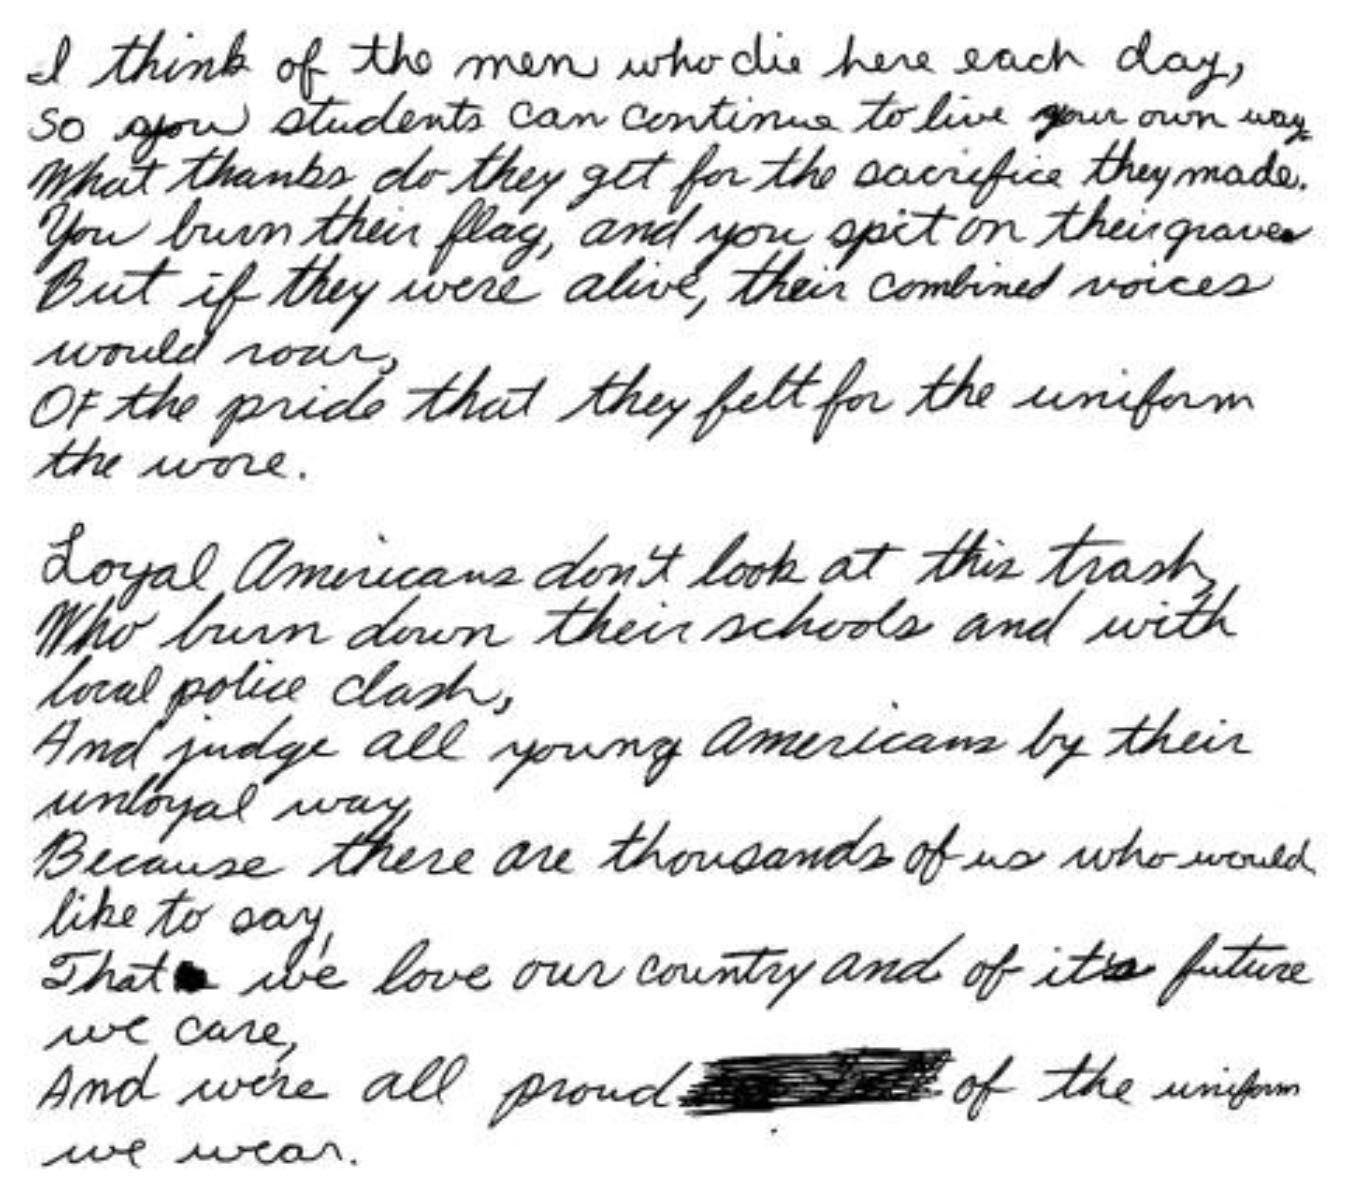 I think of the men who die here each day,
so you students can continue to live your own way.
What thanks do they get for the sacrifice they made.
You burn their flag, and you spit on their graves
But if they were alive, their combined voices
would roar,
Of the pride that they felt for the uniform
the wore.
Loyal Americans don't look at this trash,
Who burn down their schools and with
local police clash,
And judge all young Americans by their
unloyal way,
Because there are thousands of us who would
like to say,
That we love our country and of its future
we care,
And we're all proud of the uniform
we wear.